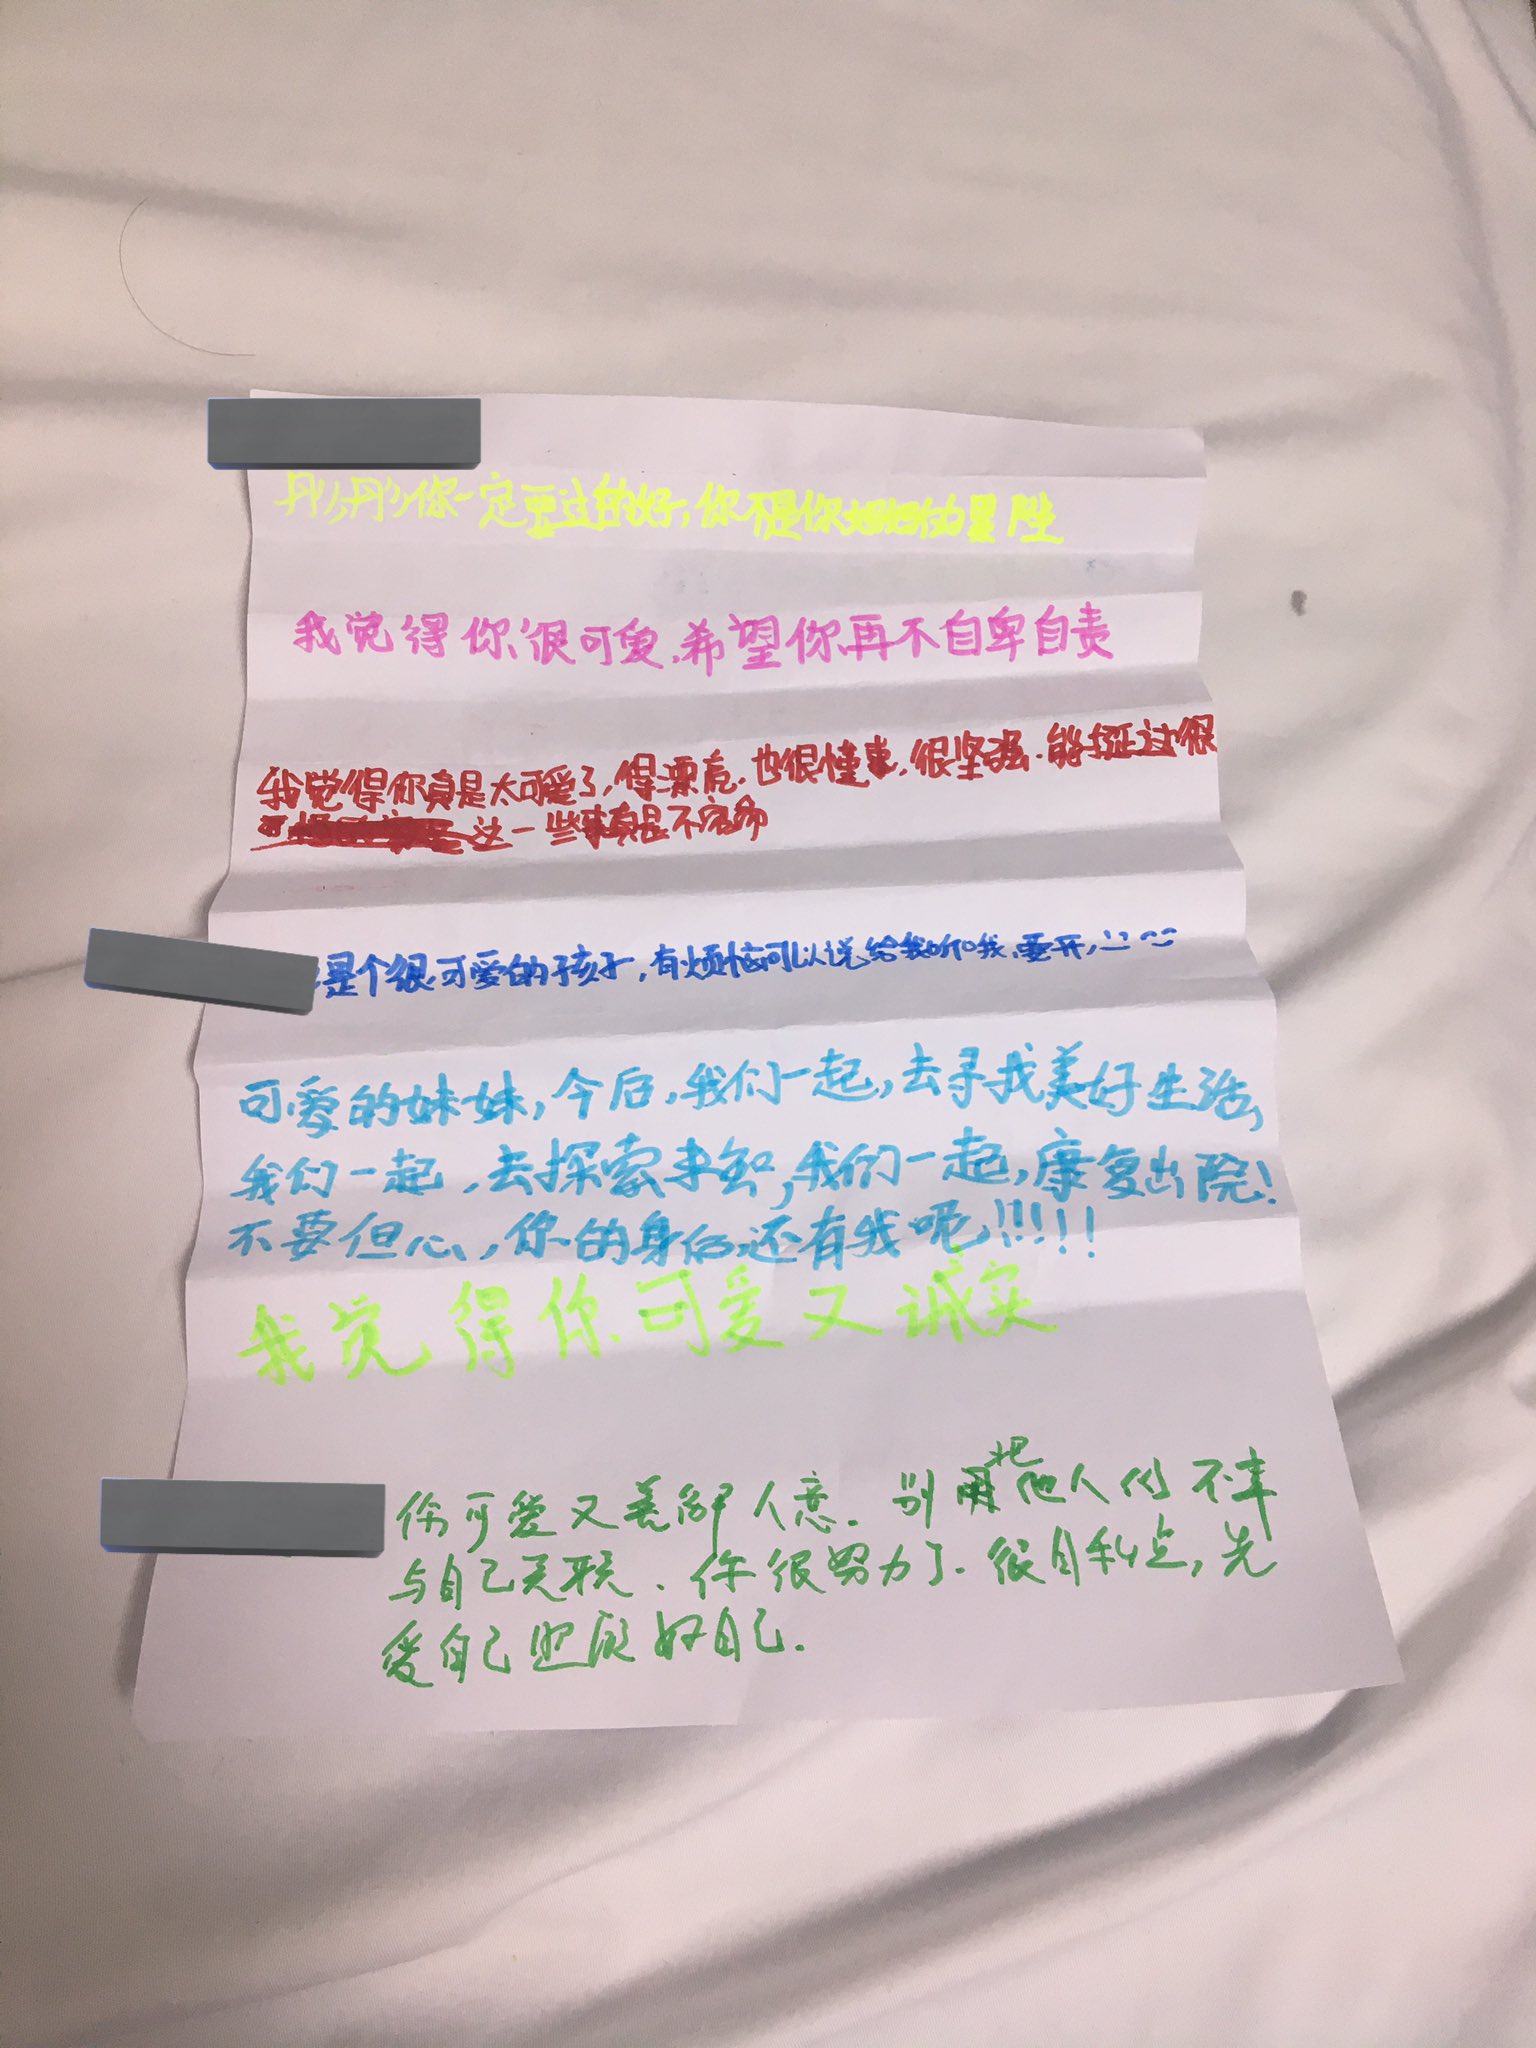 彤彤你一定要过的好,你不是你
我觉得你很可爱,希望你再不自卑自责
我觉得你真是太可爱了,得漂亮,也很懂事,很坚强.能挺过很
这一些事真是不容易
是个很可爱的孩子,有烦恼可以说给我听哦,要开
可爱的妹妹,今后,我们一起,去寻找美好生活,
我们一起,去探索未知,我们一起,康复出院!
不要但心,你的身后还有我呢!!!!!
我觉得你可爱又诚实
你可爱又善解人意.别把他人的不幸
与自己关联.你很努力了.很自私点,先
爱自己照顾好自己.